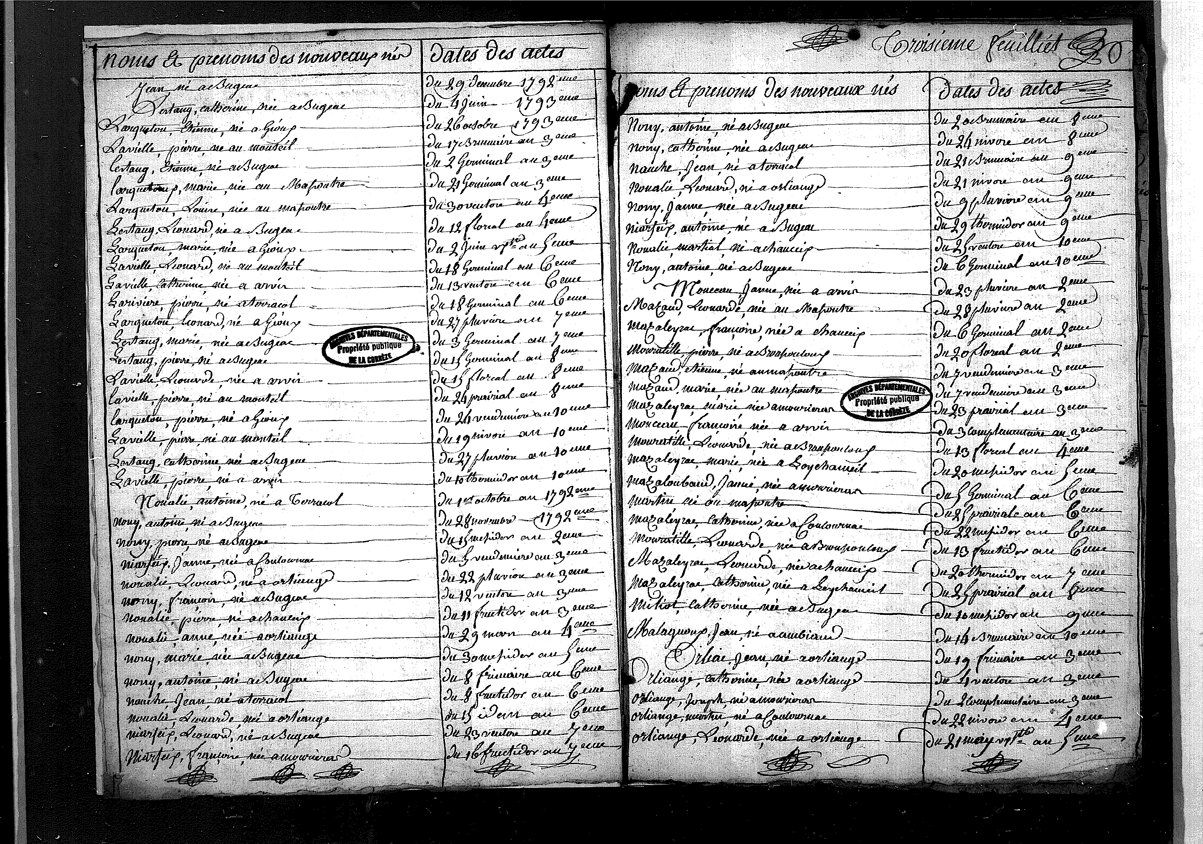 noms Et prenoms des nouveaux nés dates des actes
Jean né a Bugene du 29 decembre 1792
Lestang, catherine, née a Bugene du 4 Juin 1793eme
Larqueton, Etienne, né a Gioux du 26 octobre 1793eme
Lavielle, pierre, né au monteil du 17 Brumaire an 3eme
Lestang, Etienne, né a Bugene du 2 Germinal an 3eme
Larqueton, marie, née au Mapontre du 21 Germinal an 3eme
Larqueton, Louise, née au mapontre du 3 ventose an 4eme
Lestang, Leonard, né a Bugene du 12 floreal an 4eme
Larqueton marie, née a Gioux du 2 Juin an 5eme
Lavielle, Leonard, né au monteil du 18 Germinal an 6eme
Lavielle, Catherine, née a arvir du 13 ventose an 6eme
Lariviere, pierre, né a terracol du 18 Germinal an 6eme
Larqueton, Leonard, né a Gioux du 27 pluviose an 7eme
Lestang, marie, née a Bugene du 3 Germinal an 7eme
Lestang, pierre, né a Bugene du 15 Germinal an 8eme
Lavielle, Leonarde, née a arvir du 15 floreal an 8eme
Lavielle, pierre, né au monteil du 24 prairial an 8
Larqueton, pierre, né a Gioux du 24 vendemiere an 10eme
Lavielle, pierre, né au monteil du 19 nivose an 10eme
Lestang, catherine, née a Bugene du 27 pluviose an 10eme
Lavielle, pierre, né a arvir du 10 thermidor an 10eme
Noualié, antoine, né a Terracol du 1er octobre an 1792eme
nony, antoine, né a Bugene du 28 novembre 1792eme
nony, pierre, né a Bugene du 15 messidor an 2eme
marseix, Janne, née a Coulournac du 5 vendemiere an 3eme
noualié, Leonard, né a orliange du 22 pluviose an 3eme
nony, françois, né a Bugene du 12 ventose an 3eme
noualié, pierre, né a chauceix du 11 fructidor an 3eme
noualié anne, née a orliange du 29 mars an 4eme
nony, marie, née a Bugene du 30 messidor an 5eme
nony, antoine, né a Bugene du 8 frimaire an 6eme
nanche Jean né a terracol du 8 fructidor an 6eme
noualié, Leonarde, née a orliange du 15 idem an 6eme
marseix, Leonard, né a Bugene du 23 ventose an 7eme
Marseix, françoise, née a mournieras du 16 fructidor an 7eme
ARCHIVES DÉPARTEMENTALES
Propriété publique
DE LA CORRÈZE
Troisieme feuilliet
noms Et prenoms des nouveaux nés dates des actes
Nony, antoine, né a Bugene du 20 Brumaire an 8eme
nony, catherine, née a Bugene du 24 nivose an 8eme
Nanche, Jean, né a terracol du 21 Brumaire an 9eme
Noualié, Leonard, né a orliange du 21 nivose an 9eme
Nony, Janne, née a Bugene du 9 pluviose an 9eme
Marseix, antoine, né a Bugene du 29 thermidor an 9eme
Noualié martial, né a chauceix du 25 ventose an 10eme
Nony, antoine, né a Bugene du 6 Germinal an 10eme
Monceau, Janne, née a arvir du 23 pluviose an 2eme
Mazaud, Leonarde, née au Mapontre du 28 pluviose an 2eme
Mazaleyrac, françoise, née a chauceix du 6 Germinal an 2eme
Mouratille, pierre, né a Bronpouloux du 20 floreal an 2eme
Mazaud, Etienne, né au mapontre du 7 vendemiere an 3eme
Mazaud, marie, née au mapontre du 7 vendemiere an 3eme
Mazaleyrac marie née a mournieras du 23 prairial an 3eme
Monceau, françoise, née a arvir du 3 complementaire an 3eme
Mouratille, Leonarde, née a Bronpouloux du 13 floreal an 4eme
Mazaleyrac, marie, née a Leychameil du 20 messidor an 5eme
Mazaloubaud, Jamie, née a mournieras du 5 Germinal an 6eme
Martin né au mapontre du 25 prairiale an 6eme
Mazaleyrac, Catherine, née a Coulournac du 22 messidor an 6eme
Mouratille, Leonarde, née a Bronpouloux du 13 fructidor an 6eme
Mazaleyrac, Leonarde, née a chauceix du 20 thermidor an 7eme
Mazaleyrac, Catherine, née a Leychameil du 25 prairial an 8eme
Michot, Catherine, née a Bugene du 10 messidor an 9eme
Malagnoux, Jean, né a ambiaud du 14 Brumaire an 10eme
Orliac, Jean, né a orliange du 19 frimaire an 3eme
Orliange, catherine, née a orliange du 4 ventose an 3eme
orliange, Joseph, né a mournieras du 2 complementaire an 3eme
orliange, martin, né a Coulournac du 22 nivose an 4eme
orliange, Leonarde, née a orliange du 21 may an 5eme
ARCHIVES DÉPARTEMENTALES
Propriété publique
DE LA CORRÈZE